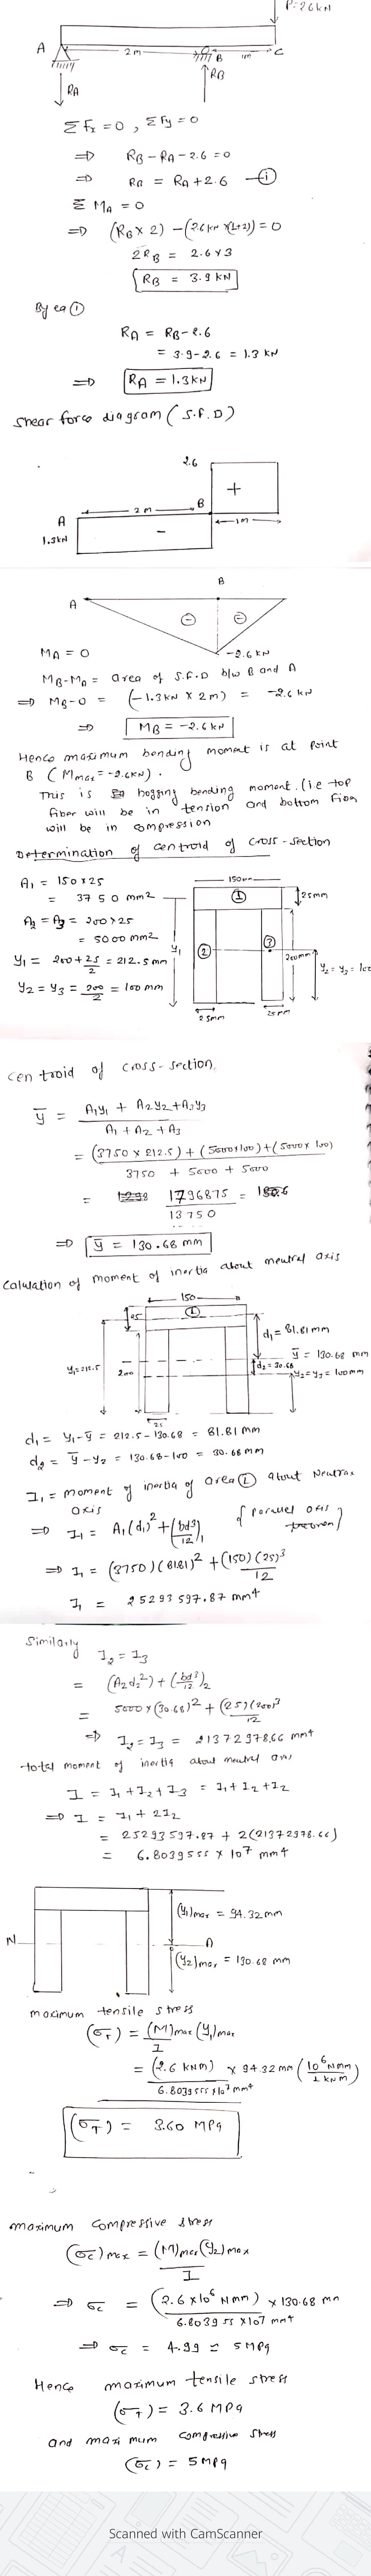 P=26kN
A
2m
B
1m
C
RA
RB
ΣFx=0, ΣFy=0
⇒ RB-RA-2.6=0
⇒ RB = RA+2.6 —(i)
ΣMA = 0
⇒ (RB×2) -(2.6kN×(1+2))=0
2RB = 2.6×3
RB = 3.9kN
By eq (1)
RA = RB-2.6
= 3.9-2.6 = 1.3 kN
⇒ RA=1.3KN
Shear force diagram (S.F.D)
2.6
+
2m
B
A
1m
1.3kN
-
B
A
MA = 0
-2.6 kN
MB-MA = area of S.F.D b/w B and A
⇒ MB-0 = (-1.3kN × 2m) = -2.6 kN
⇒ MB=-2.6kN
Hence maximum bending moment is at point
B (Mmax=-2.6kN).
This is hogging bending moment. (i.e top
fiber will be in tension and bottom fiber
will be in compression
Determination of centroid of cross-section
150mm
A1 = 150×25
= 3750 mm2
25mm
A2 = A3 = 200×25
= 5000mm2
Y1 = 200+25/2 = 212.5mm
Y2 = Y3 = 200/2 = 100 mm
Y1
①
②
③
200mm
Y2 = Y3 = 100
25mm
25mm
Centroid of cross-section.
ȳ = A1y1 + A2y2+A3y3 / A1 + A2 + A3
= (3750×212.5) + (5000×100)+(5000×100) / 3750 + 5000 + 5000
= 1796875 / 13750
⇒ ȳ = 130.68 mm
Calulation of moment of inertia about neutral axis
150
25
①
d1= 81.81mm
ȳ = 130.68 mm
Y1=212.5
200
d2= 30.68
Y2=Y3= 100mm
25
d1 = Y1-ȳ = 212.5-130.68 = 81.81 mm
d2 = ȳ-Y2 = 130.68-100 = 30.68mm
I1 = moment of inertia of area ① about Neutral
axis
⇒ I1 = A1(d1)2+(bd3/12)1 {parallel axis theorem}
⇒ I1 = (3750)(81.81)2 +(150)(25)3/12
I1 = 25293597.87 mm4
Similarly I2=I3
= (A2d22)+(bd3/12)2
= 5000×(30.68)2 + (25)(200)3/12
⇒ I2=I3 = 21372978.66 mm4
total moment of inertia about neutral axis
I = I1+I2+I3 = I1+I2+I2
⇒ I = I1+2I2
= 25293597.87 + 2(21372978.66)
= 6.8039555 × 107 mm4
(Y1)max = 94.32mm
N
A
(Y2)max = 130.68 mm
maximum tensile stress
(σT) = (M)max (Y1)max / I
= (2.6 kNm) × 94.32 mm / 6.8039555×107 mm4 (106Nmm / 1 kNm)
(σT) = 3.60 MPa
maximum compressive stress
(σc)max = (M)max(Y2)max / I
⇒ σc = (2.6×106 Nmm) × 130.68 mm / 6.803955 ×107 mm4
⇒ σc = 4.99 ≃ 5MPa
Hence maximum tensile stress
(σT) = 3.6 MPa
and maximum compressive stress
(σc) = 5MPa
Scanned with CamScanner